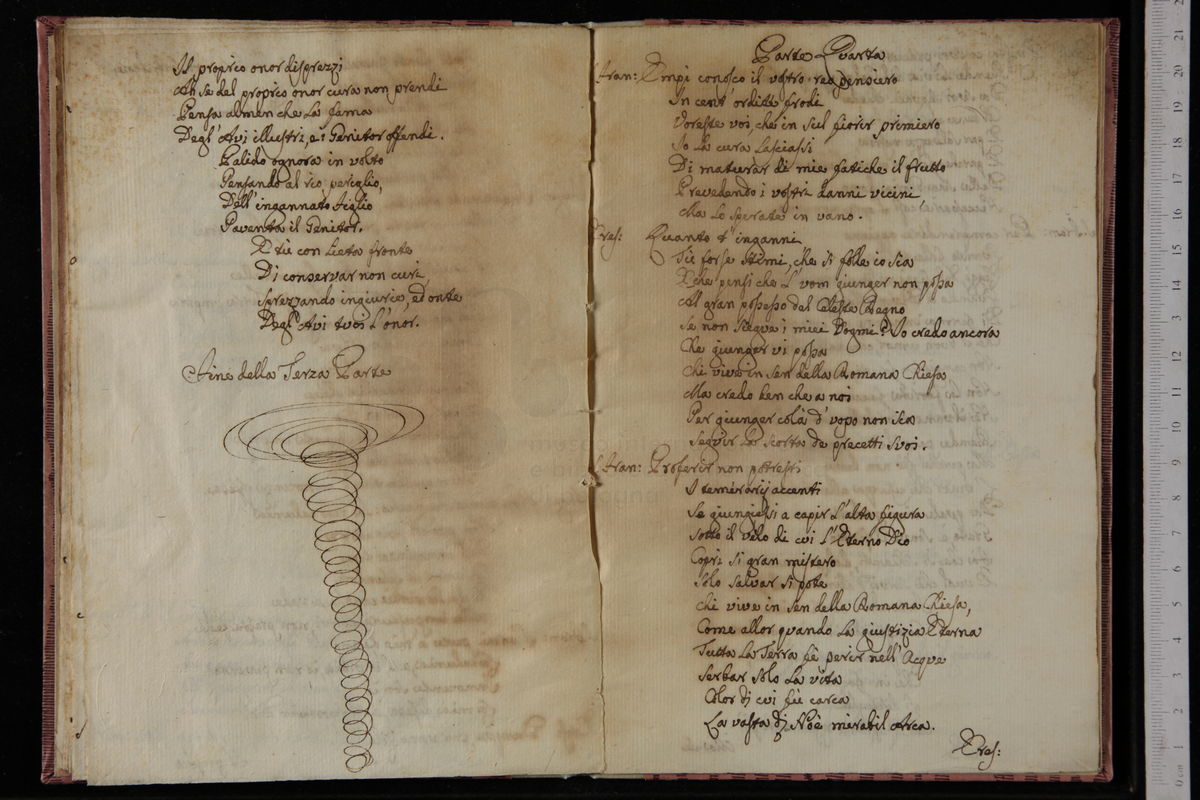 Il proprio onor disprezzi
Ah se del proprio onor cura non prendi
Pensa almen che la fama
Degl' Avi illustri, e i Genitor offendi.
Palido ognora in volto
Pensando al rio periglio,
Dell' ingannato figlio
Paventa il Genitor.
E tù con lieta fronte
Di conservar non curi
Sprezzando ingiurie, ed onte
Degl' Avi tuoi l'onor.
Fine della Terza Parte
Parte Quarta
Fran: Empi conosco il vostro reo pensiero
In cent' ordite frodi
Voreste voi, che in sul fiorir primiero
Io la cura lasciassi
Di maturar di mie fatiche il frutto
Prevedendo i vostri danni vicini,
Ma lo sperate in vano.
Eres: Quanto t' inganni
Tù forse stimi, che sì folle io sia
E che pensi che l' vom giunger non possa
Al gran possesso del Celeste Regno
Se non siegue i miei Dogmi? Io credo ancora
Che giunger vi possa
Chi vive in sen della Romana Chiesa
Ma credo ben che a noi
Per giunger colà d' vopo non sia
Seguir la scorta de precetti suoi.
Fran: Proferir non potresti
I temerarij accenti
Se giungessi a capir l'alta figura
Sotto il velo di cui l'Eterno Dio
Coprì sì gran mistero
Solo salvar si pote
Chi vive in sen della Romana Chiesa,
Come allor quando la giustizia Eterna
Tutta la Terra fè perir nell' Acque
Serbar solo la vita
Color di cui fù carca
La vasta di Noè mirabil Arca.
Eres: